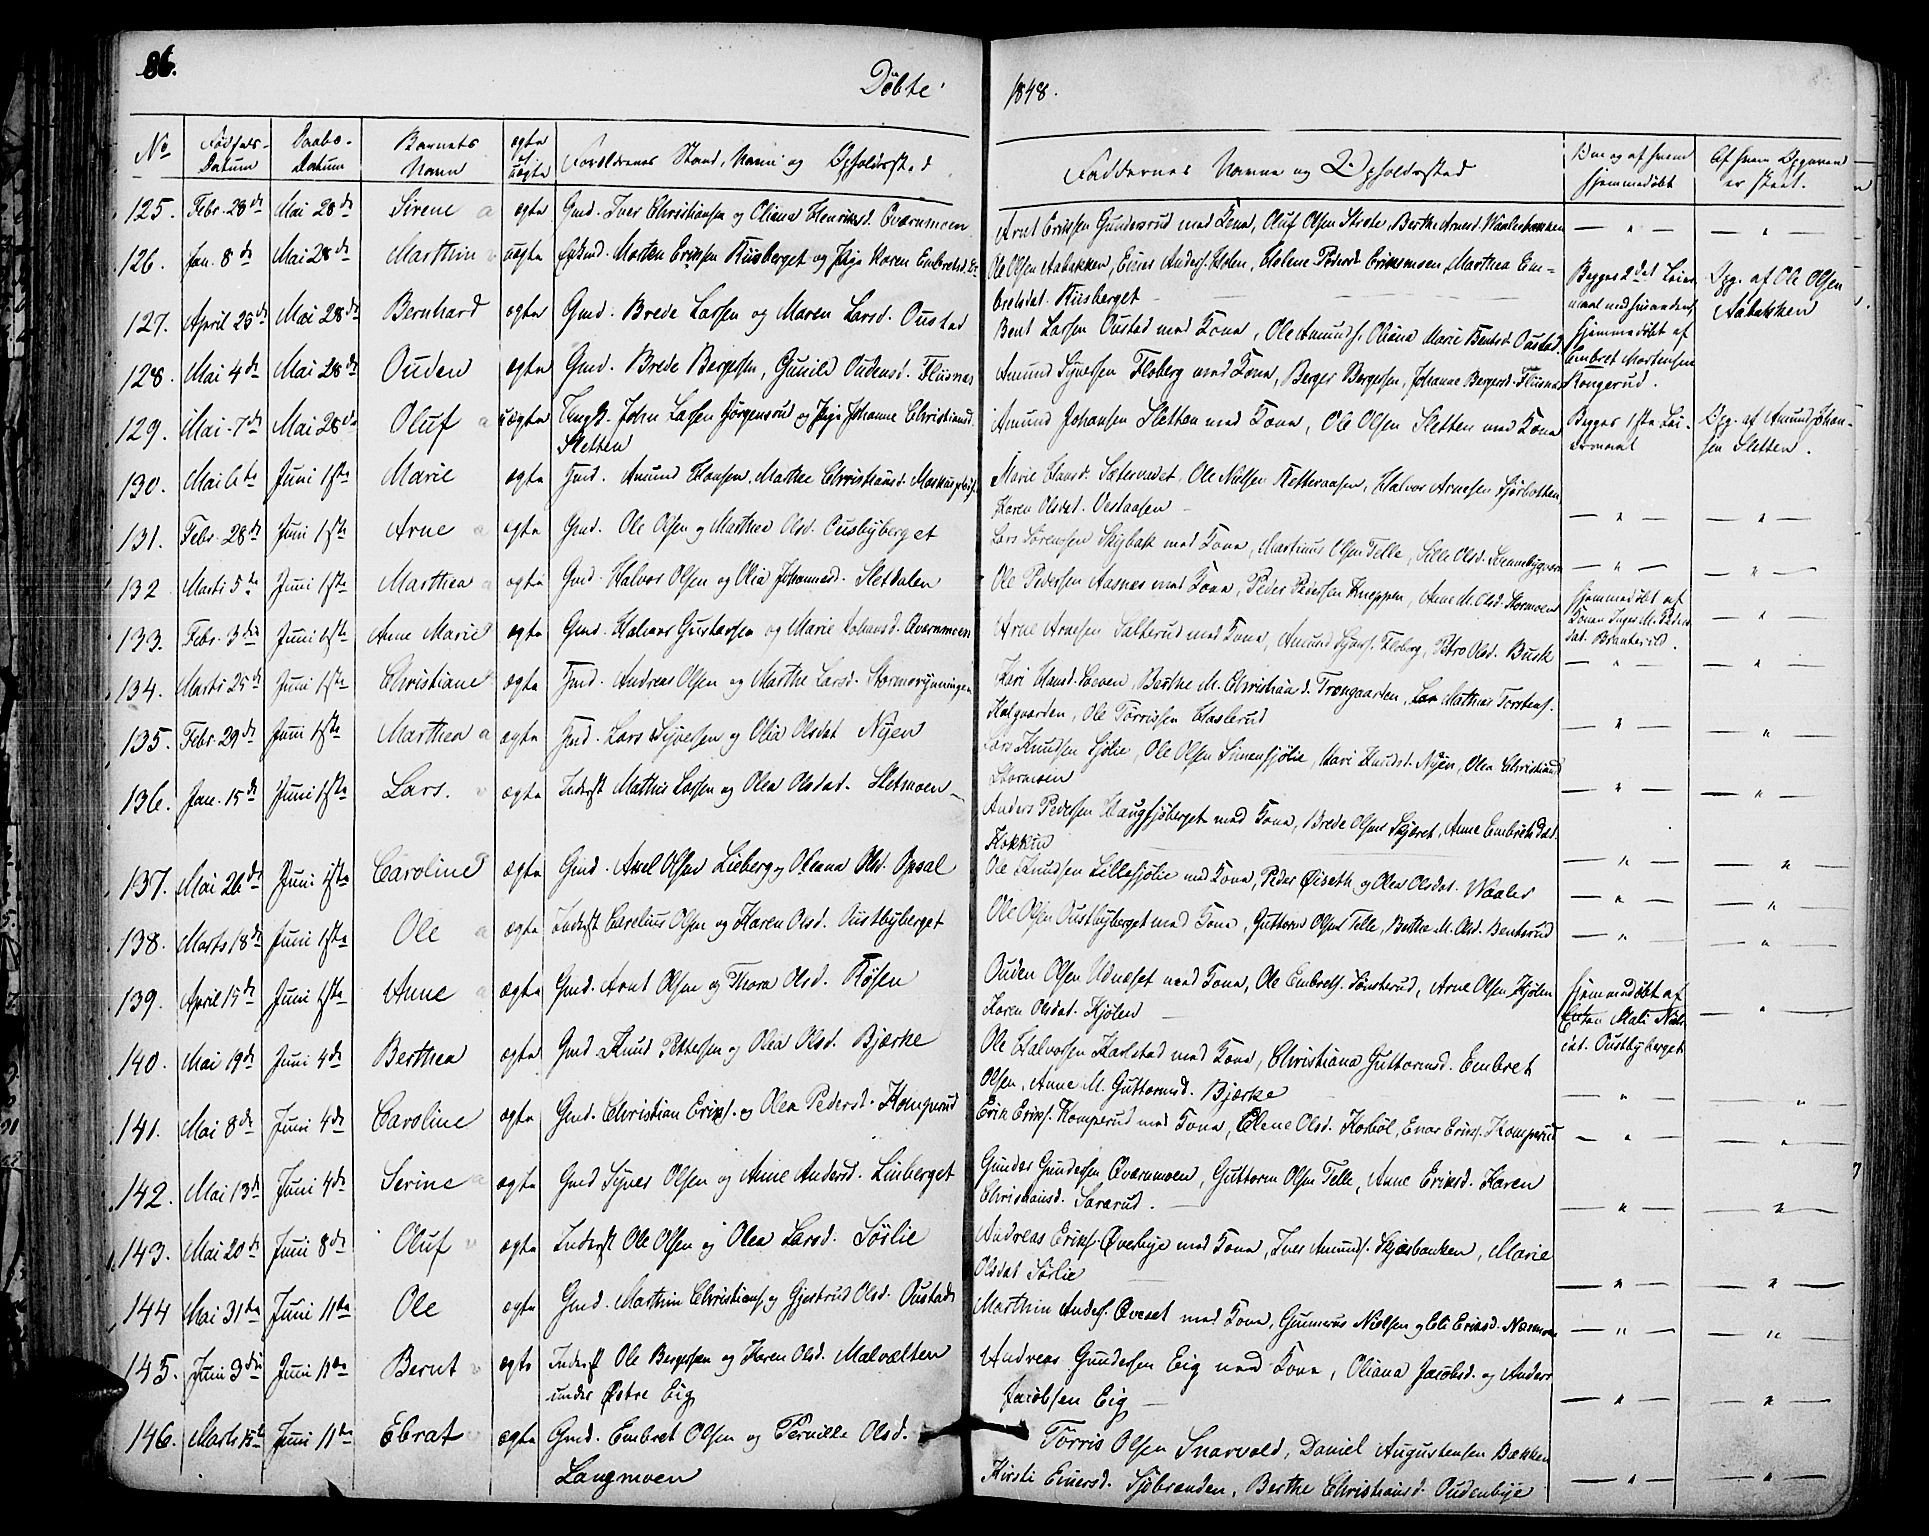 86.
Døbte
1848.
No Fødsels-Datum Daabs-Datum Barnets Navn ægte el uægte Forældrenes Stand, Navn og Opholdssted Faddernes Navne og Opholdssted Om og af hvem hjemmedøbt Af hvem Opgaven er skeet.
125. Febr. 28de Mai 28de Sirene ægte Gmd. Iver Christiansen og Oliana Henriksd. Qværnmoen Arnt Eriksen Gundersrud med Kona, Oluf Olsen Strate, Berthe Arnesd. — " — — " —
126. Jan. 8de Mai 28de Marthin uægte Morten Eriksen Riisberget og Pige Karen Embretsd. Ole Olsen Aabakken, Einer Anders. Holen, Helene Pedersd. Eriksmoen, Marthea Em-
bretsdat. Riisberget Begges 2det Leier- Opg. af Ole Olsen
Aabakken
127. April 25de Mai 28de Bernhard ægte Gmd. Brede Larsen og Maren Larsd. Oustad Bent Larsen Oustad med Kona, Ole Amunds. Oliana Marie Bentsd. Oustad. hjemmedøbt af
Embret Mortensen
Kongerud.
128. Mai 4de Mai 28de Ouden ægte Gmd. Brede Bergersen, Gunild Oudensd. Flisnæs Amund Syversen Floberg med Kona, Berger Bergersen, Johanne Bergersd. Flisnæs
129. Mai 7de Mai 28de Oluf uægte Ungk. John Larsen Jørgensrud og Pige Johanne Christiansd. Amund Johansen Sletten med Kona, Ole Olsen Sletten med Kona Begges 1ste Lei- Opg. af Amund Johan-
Sletten ermaal sen Sletten.
130. Mai 6te Juni 1ste Marie ægte Gmd. Amund Hansen, Marthe Christiansd. Marie Hansd. Sætervedet, Ole Nielsen Ketteraasen, Halvor Arnesen Sjøbotten
Karen Olsdat. Vestaasen — " — — " —
131. Febr. 28de Juni 1ste Arne ægte Gmd. Ole Olsen og Marthea Olsd. Ousbyberget Lars Sørensen Skybak med Kona, Martinus Olsen Telle, Sille Olsd. — " — — " —
132 Marts 5te Juni 1ste Marthea ægte Gmd. Halvor Olsen og Olia Johannesd. Sletdalen Ole Pedersen Aasnæs med Kona, Peder Pedersen Kneppen, Anne M. Olsd. Stormoen hjemmedøbt af
Konen Inger M. Peders
dat. — " —
133. Febr. 3die Juni 1ste Anne Marie ægte Gmd. Halvor Gustavsen og Marie Johansd. Qværnmoen Arne Arnesen Sätterud med Kona, Amund Floberg, Petro Olsd. Busk — " — — " —
134. Marts 25de Juni 1ste Christiane ægte Gmd. Andreas Olsen og Marthe Larsd. Stormorydningen Kari Hansd. Berthe M. Christiansd. Trongaarden, Mathias Torstens.
Kalgaarden, Ole Torrissen Haslerud — " — — " —
135. Febr. 29de Juni 1ste Marthea ægte Gmd. Lars Syversen og Olia Olsdat Nyen Lars Knudsen Sjølie, Ole Olsen Sinnersjølie, Kari Knudsd. Nyen, Olea Christiansd
Stormoen — " — — " —
136. Jan. 15de Juni 1ste Lars. ægte Inderst Mathis Larsen og Olea Olsdat. Sletmoen Anders Pedersen Haugsjøberget med Kona, Brede Olsen Skjæret, Anne Embretsdat.
Kokkin — " — — " —
137. Mai 26de Juni 1ste Caroline ægte Gmd. Axel Olsen Lieberg og Oleana Olsd. Opsal Ole Knudsen Lillesjølie med Kona, Peder Øiseth og Olea Olsdat. Waaler — " — — " —
138. Marts 18de Juni 1ste Ole ægte Inderst Carelius Olsen og Karen Olsd. Oustbyberget Ole Olsen Oustbyberget med Kona, Guttorm Olsen Telle, Berthe M. Olsd. Benterud — " — — " —
139. April 15de Juni 1ste Anne ægte Gmd. Arnt Olsen og Thora Olsd. Røsen Ouden Olsen Udnæset med Kona, Ole Embrets. Sønsterud, Arne Olsen Kjølen
Karen Olsdat. Kjølen hjemmedøbt af
Mali Niels
dat. Oustbyberget — " —
140. Mai 19de Juni 4de Berthea ægte Gmd Knud Pettersen og Olea Olsd. Bjærke Ole Halvorsen Karlstad med Kona, Christiana Guttormsd. Embret
Olsen, Anne M. Guttormsd. Bjærke — " — — " —
141. Mai 8de Juni 4de Caroline ægte Gmd. Christian Eriks. og Olea Pedersd. Komperud Erik Eriks. Komperud med Kona, Elene Olsd. Kosbøl, Enar Eriks. Komperud — " — — " —
142. Mai 13de Juni 4de Serine ægte Gmd Syver Olsen og Anne Andersd. Linberget Gunder Gundersen Qværnmoen, Guttorm Olsen Telle, Anne Eriksd. Karen
Christiansd. Sørerud. — " — — " —
143. Mai 20de Juni 8de Oluf ægte Inderst Ole Olsen og Olea Larsd. Sørlie Andreas Eriks. Øverbye med Kona, Iver Amunds. Skjæsbanken, Marie
Olsdat Sørlie — " — — " —
144 Mai 31te Juni 11te Ole ægte Gmd. Marthin Christians. og Gjertrud Olsd. Oustad Marthin Anders. Qveset med Kona, Gunnerus Nielsen og Eli Eriksd. Næsmoen — " — — " —
145. Juni 3die Juni 11te Bernt ægte Inderst Ole Bergersen og Karen Olsd. Malvelten Andreas Gundersen Eig med Kona, Oliana Jacobsd. og Anders
under Østre Eig Jacobsen Eig — " — — " —
146. Marts 15te Juni 11te Ebrat ægte Gmd. Embret Olsen og Pernille Olsd. Torris Olsen Snarvold, Daniel Augustensen Bækken
Langmoen Kirsti Einersd. Sjøbranden, Berthe Christiansd. Oudenbye — " — — " —